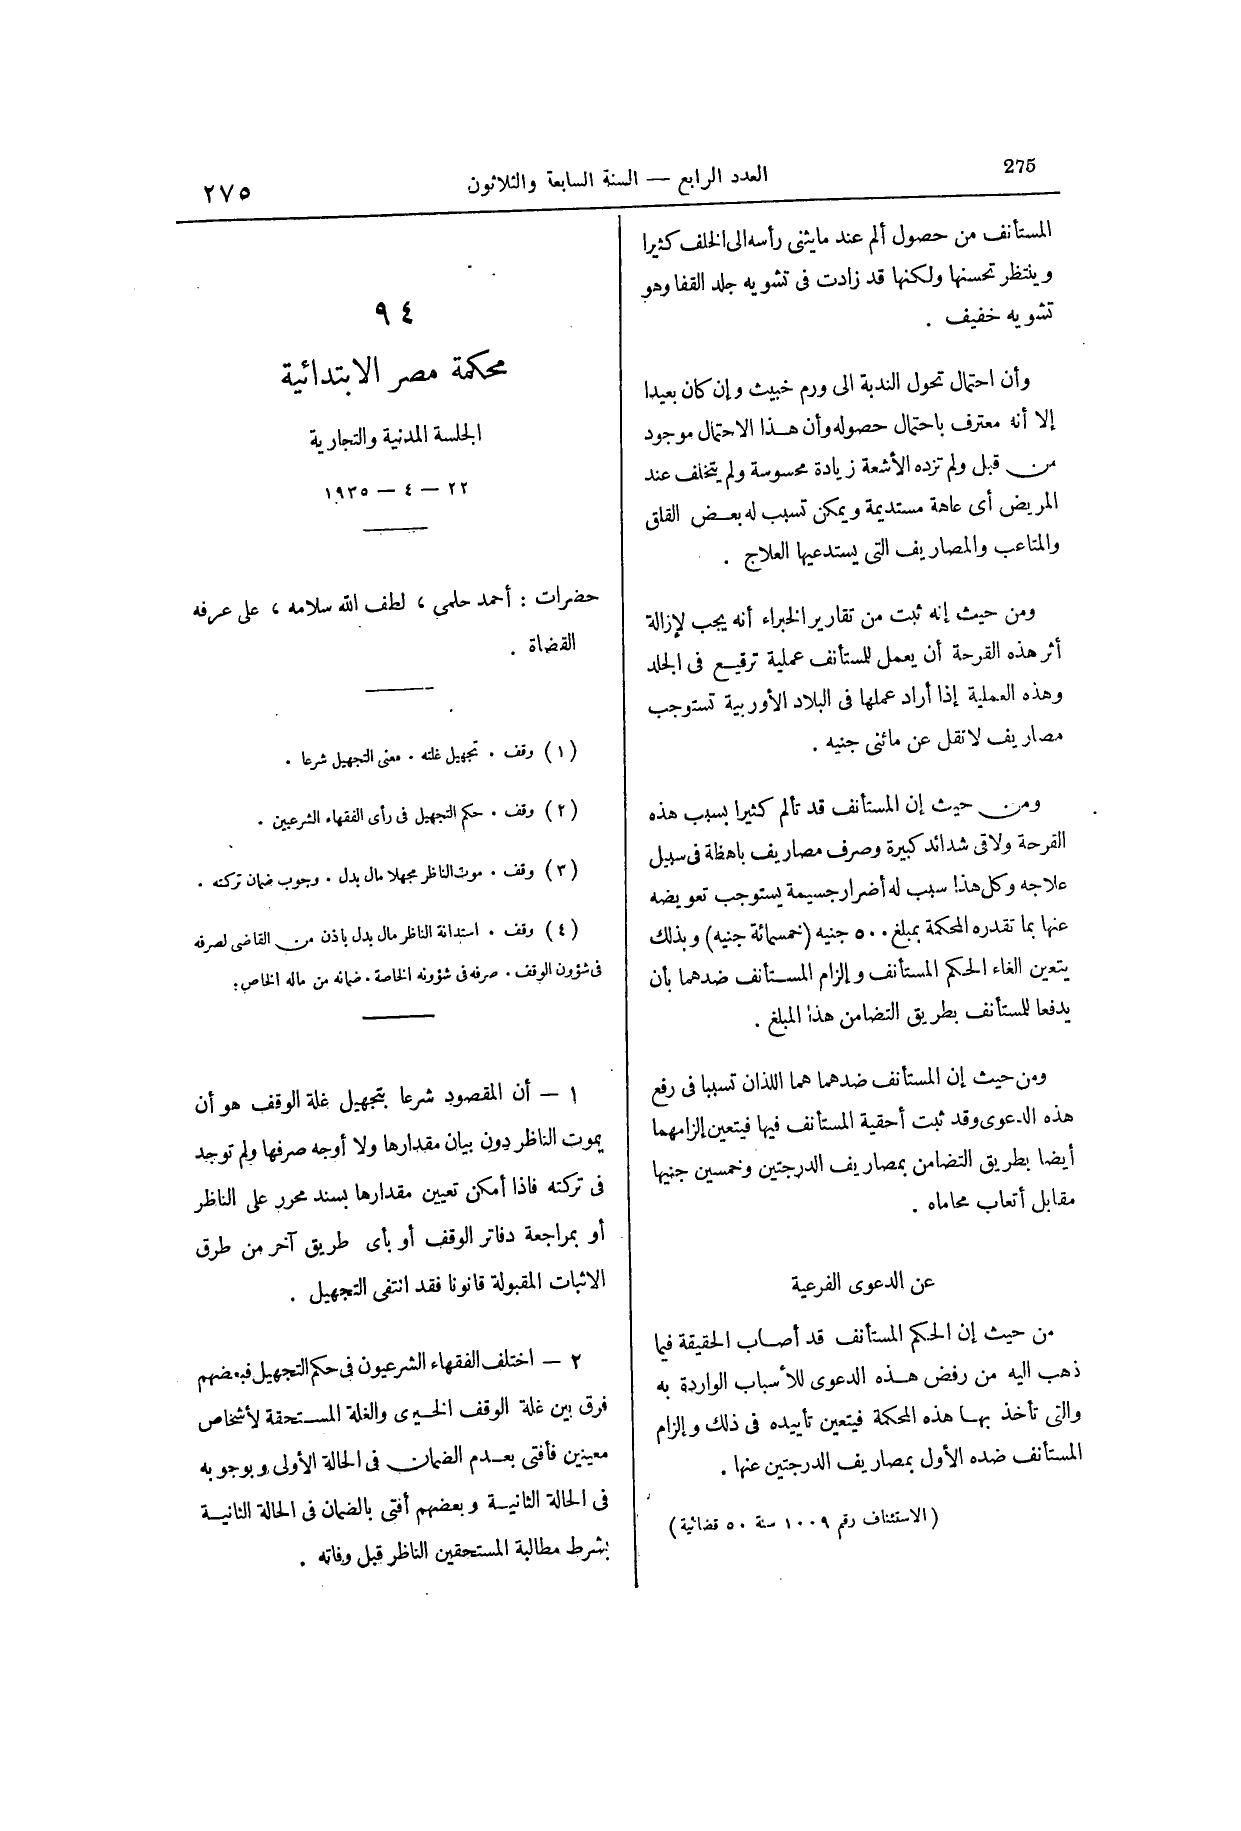 275
العدد الرابع — السنة السابعة والثلاثون
٢٧٥
المستأنف من حصول ألم عند مايثنى رأسه الى الخلف كثيرا
وينتظر تحسنها ولكنها قد زادت فى تشويه جلد القفا وهو
تشويه خفيف .
وأن احتمال تحول الندبة الى ورم خبيث وإن كان بعيدا
إلا أنه معترف باحتمال حصوله وأن هذا الاحتمال موجود
من قبل ولم تزده الأشعة زيادة محسوسة ولم يتخلف عند
المريض أى عاهة مستديمة ويمكن تسبب له بعض القلق
والمتاعب والمصاريف التى يستدعيها العلاج .
ومن حيث إنه ثبت من تقارير الخبراء أنه يجب لإزالة
أثر هذه القرحة أن يعمل للمستأنف عملية ترقيع فى الجلد
وهذه العملية إذا أراد عملها فى البلاد الأوربية تستوجب
مصاريف لا تقل عن مائتى جنيه .
ومن حيث إن المستأنف قد تألم كثيرا بسبب هذه
القرحة ولاقى شدائد كبيرة وصرف مصاريف باهظة فى سبيل
علاجه وكل هذا سبب له أضرار جسيمة يستوجب تعويضه
عنها بما تقدره المحكمة بمبلغ ٥٠٠ جنيه (خمسمائة جنيه) وبذلك
يتعين الغاء الحكم المستأنف وإلزام المستأنف ضدهما بأن
يدفعا للمستأنف بطريق التضامن هذا المبلغ .
ومن حيث إن المستأنف ضدهما هما اللذان تسببا فى رفع
هذه الدعوى وقد ثبت أحقية المستأنف فيها فيتعين إلزامهما
أيضا بطريق التضامن بمصاريف الدرجتين وخمسين جنيها
مقابل أتعاب محاماه .
عن الدعوى الفرعية
من حيث إن الحكم المستأنف قد أصاب الحقيقة فيما
ذهب اليه من رفض هذه الدعوى للأسباب الواردة به
والتى تأخذ بها هذه المحكمة فيتعين تأييده فى ذلك وإلزام
المستأنف ضده الأول بمصاريف الدرجتين عنها .
(الاستئناف رقم ١٠٠٩ سنة ٥٠ قضائية)
٩٤
محكمة مصر الابتدائية
الجلسة المدنية والتجارية
٢٢ — ٤ — ١٩٣٥
حضرات : أحمد حلمى ، لطف الله سلامه ، على عرفه
القضاة .
(١) وقف . تجهيل غلته . معنى التجهيل شرعا .
(٢) وقف . حكم التجهيل فى رأى الفقهاء الشرعيين .
(٣) وقف . موت الناظر مجهلا مال بدل . وجوب ضمان تركته .
(٤) وقف . استدانة الناظر مال بدل باذن من القاضى لصرفه
فى شؤون الوقف . صرفه فى شؤونه الخاصة . ضمانه من ماله الخاص :
١ — أن المقصود شرعا بتجهيل غلة الوقف هو أن
يموت الناظر دون بيان مقدارها ولا أوجه صرفها ولم توجد
فى تركته فاذا أمكن تعيين مقدارها بسند محرر على الناظر
أو بمراجعة دفاتر الوقف أو بأى طريق آخر من طرق
الاثبات المقبولة قانونا فقد انتفى التجهيل .
٢ — اختلف الفقهاء الشرعيون فى حكم التجهيل فبعضهم
فرق بين غلة الوقف الخيرى والغلة المستحقة لأشخاص
معينين فأفتى بعدم الضمان فى الحالة الأولى وبوجوبه
فى الحالة الثانية وبعضهم أفتى بالضمان فى الحالة الثانية
بشرط مطالبة المستحقين الناظر قبل وفاته .